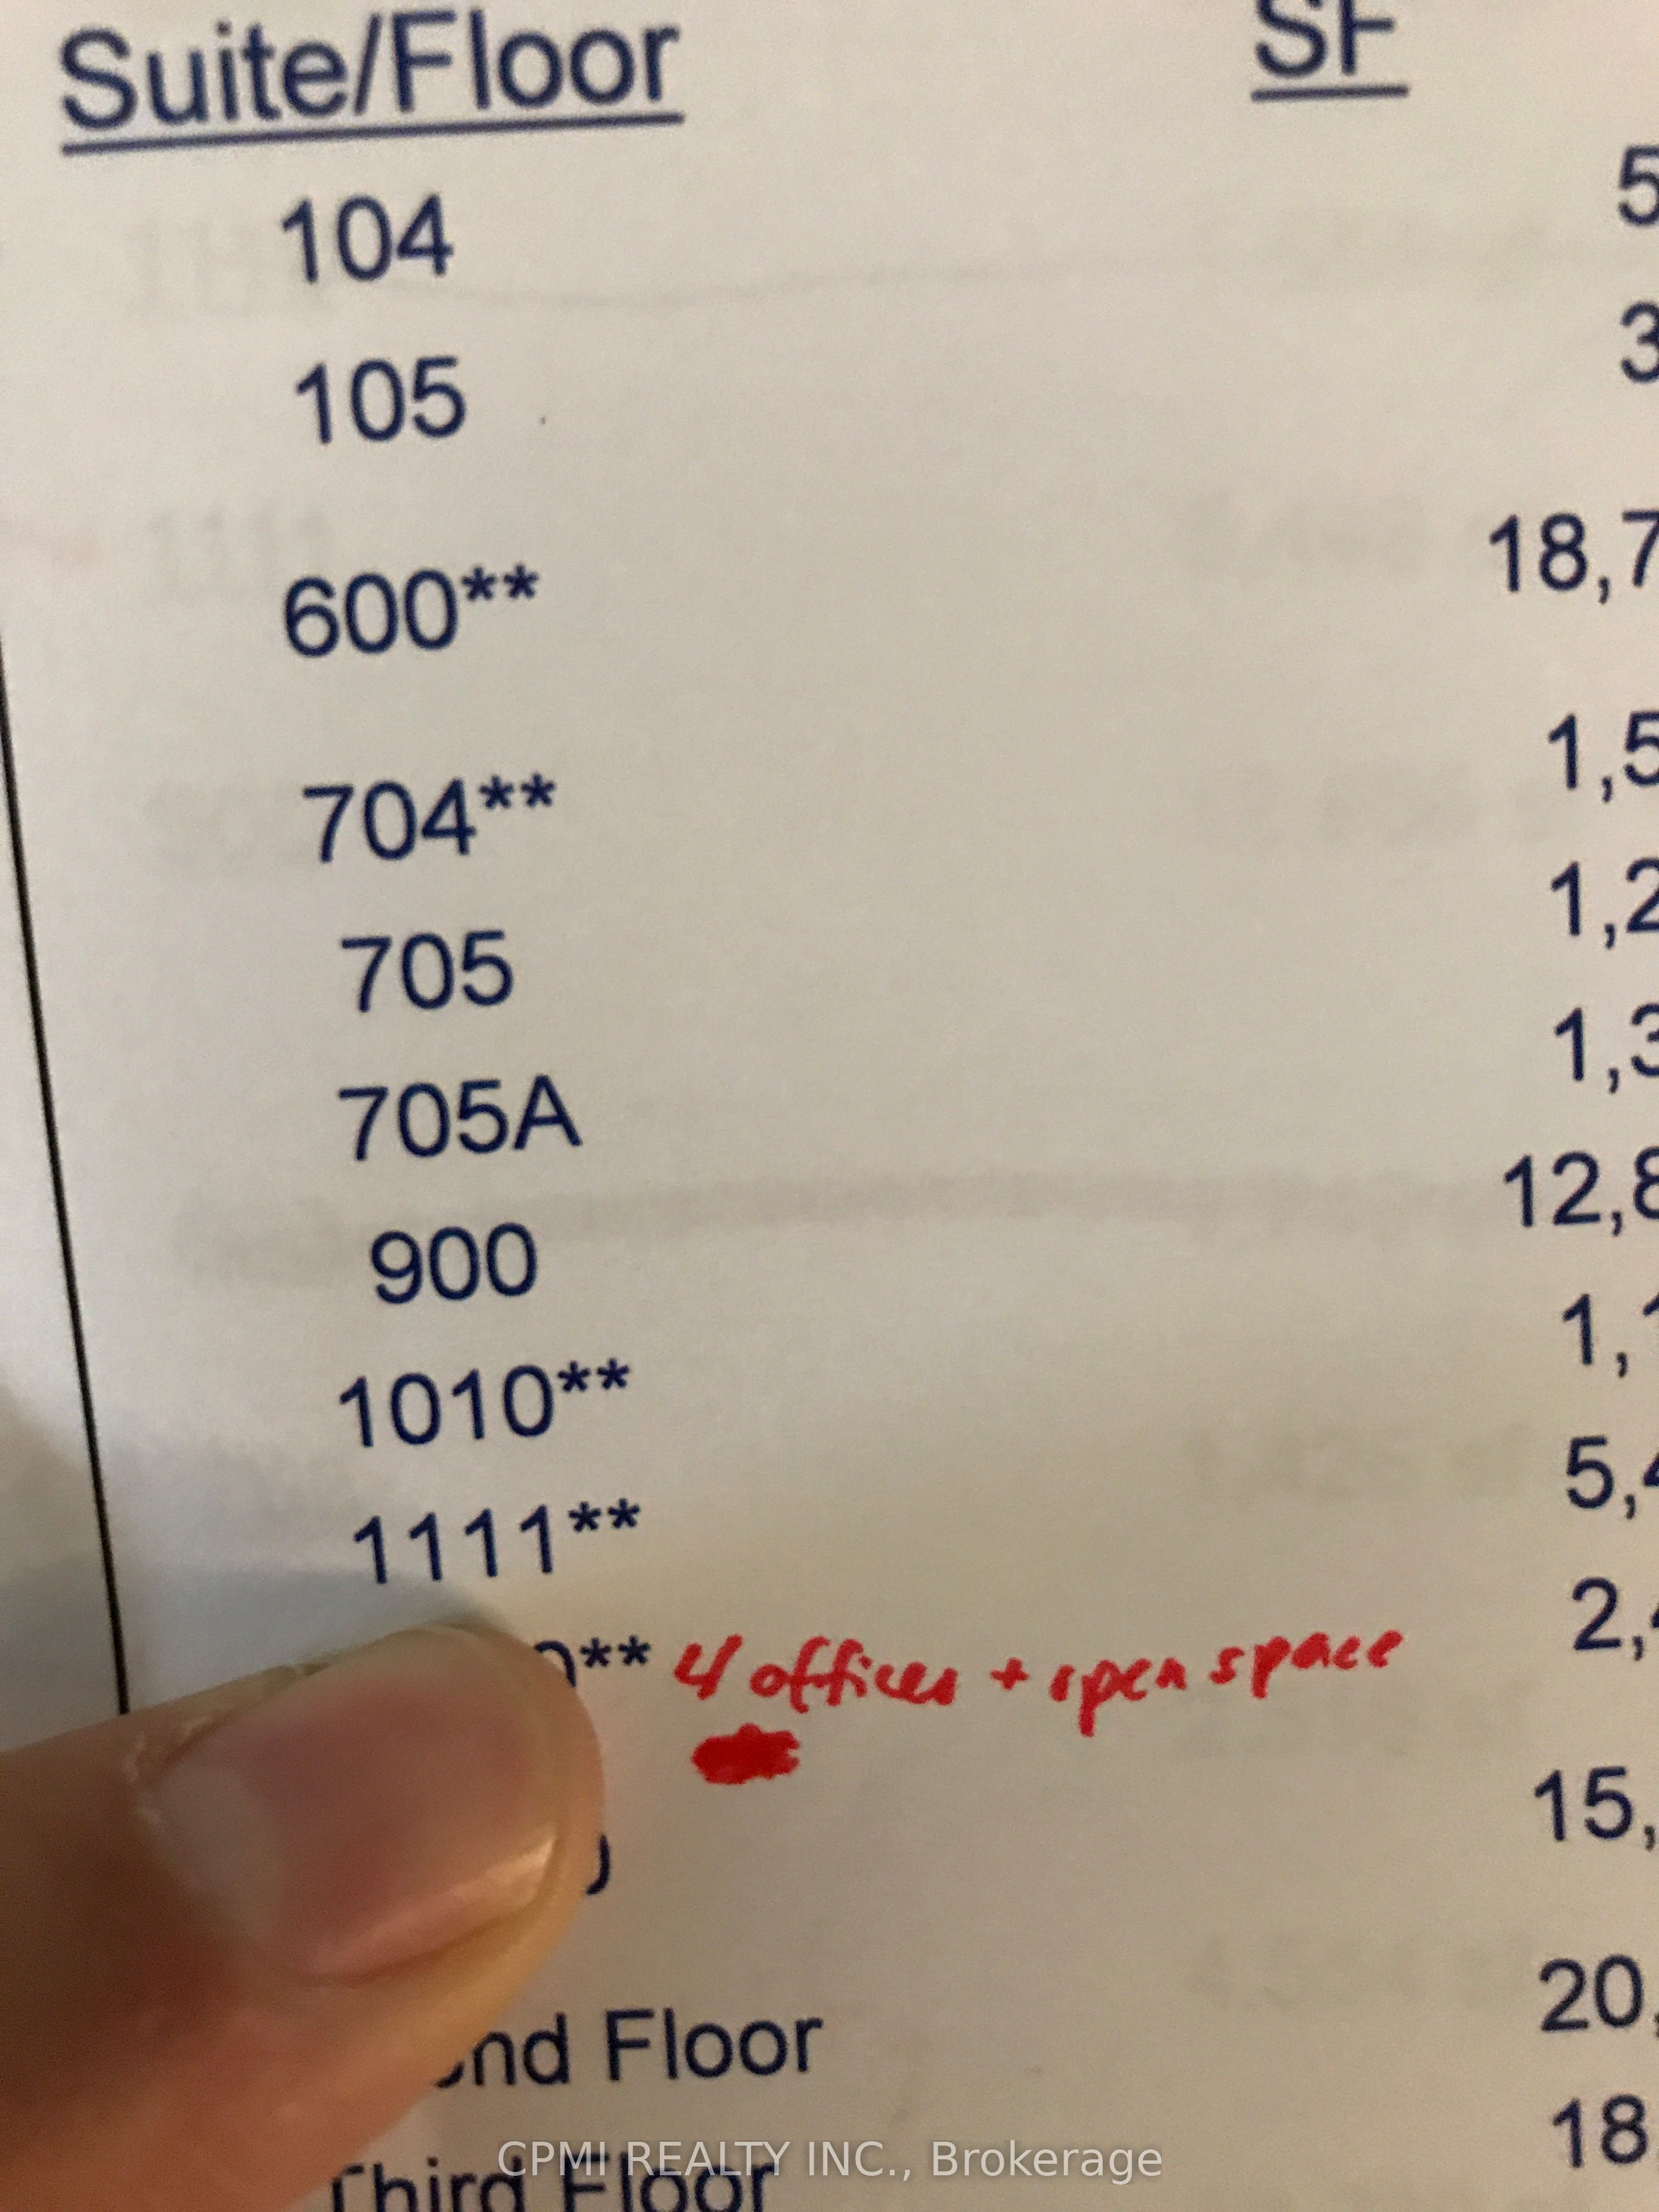 Suite/Floor SF
104 5
105 3
600** 18,7
704** 1,5
705 1,2
705A 1,3
900 12,8
1010** 1,1
1111** 5,4
0** 4 offices + open space 2,4
15,
nd Floor 20,
Third Floor 18,
CPMI REALTY INC., Brokerage